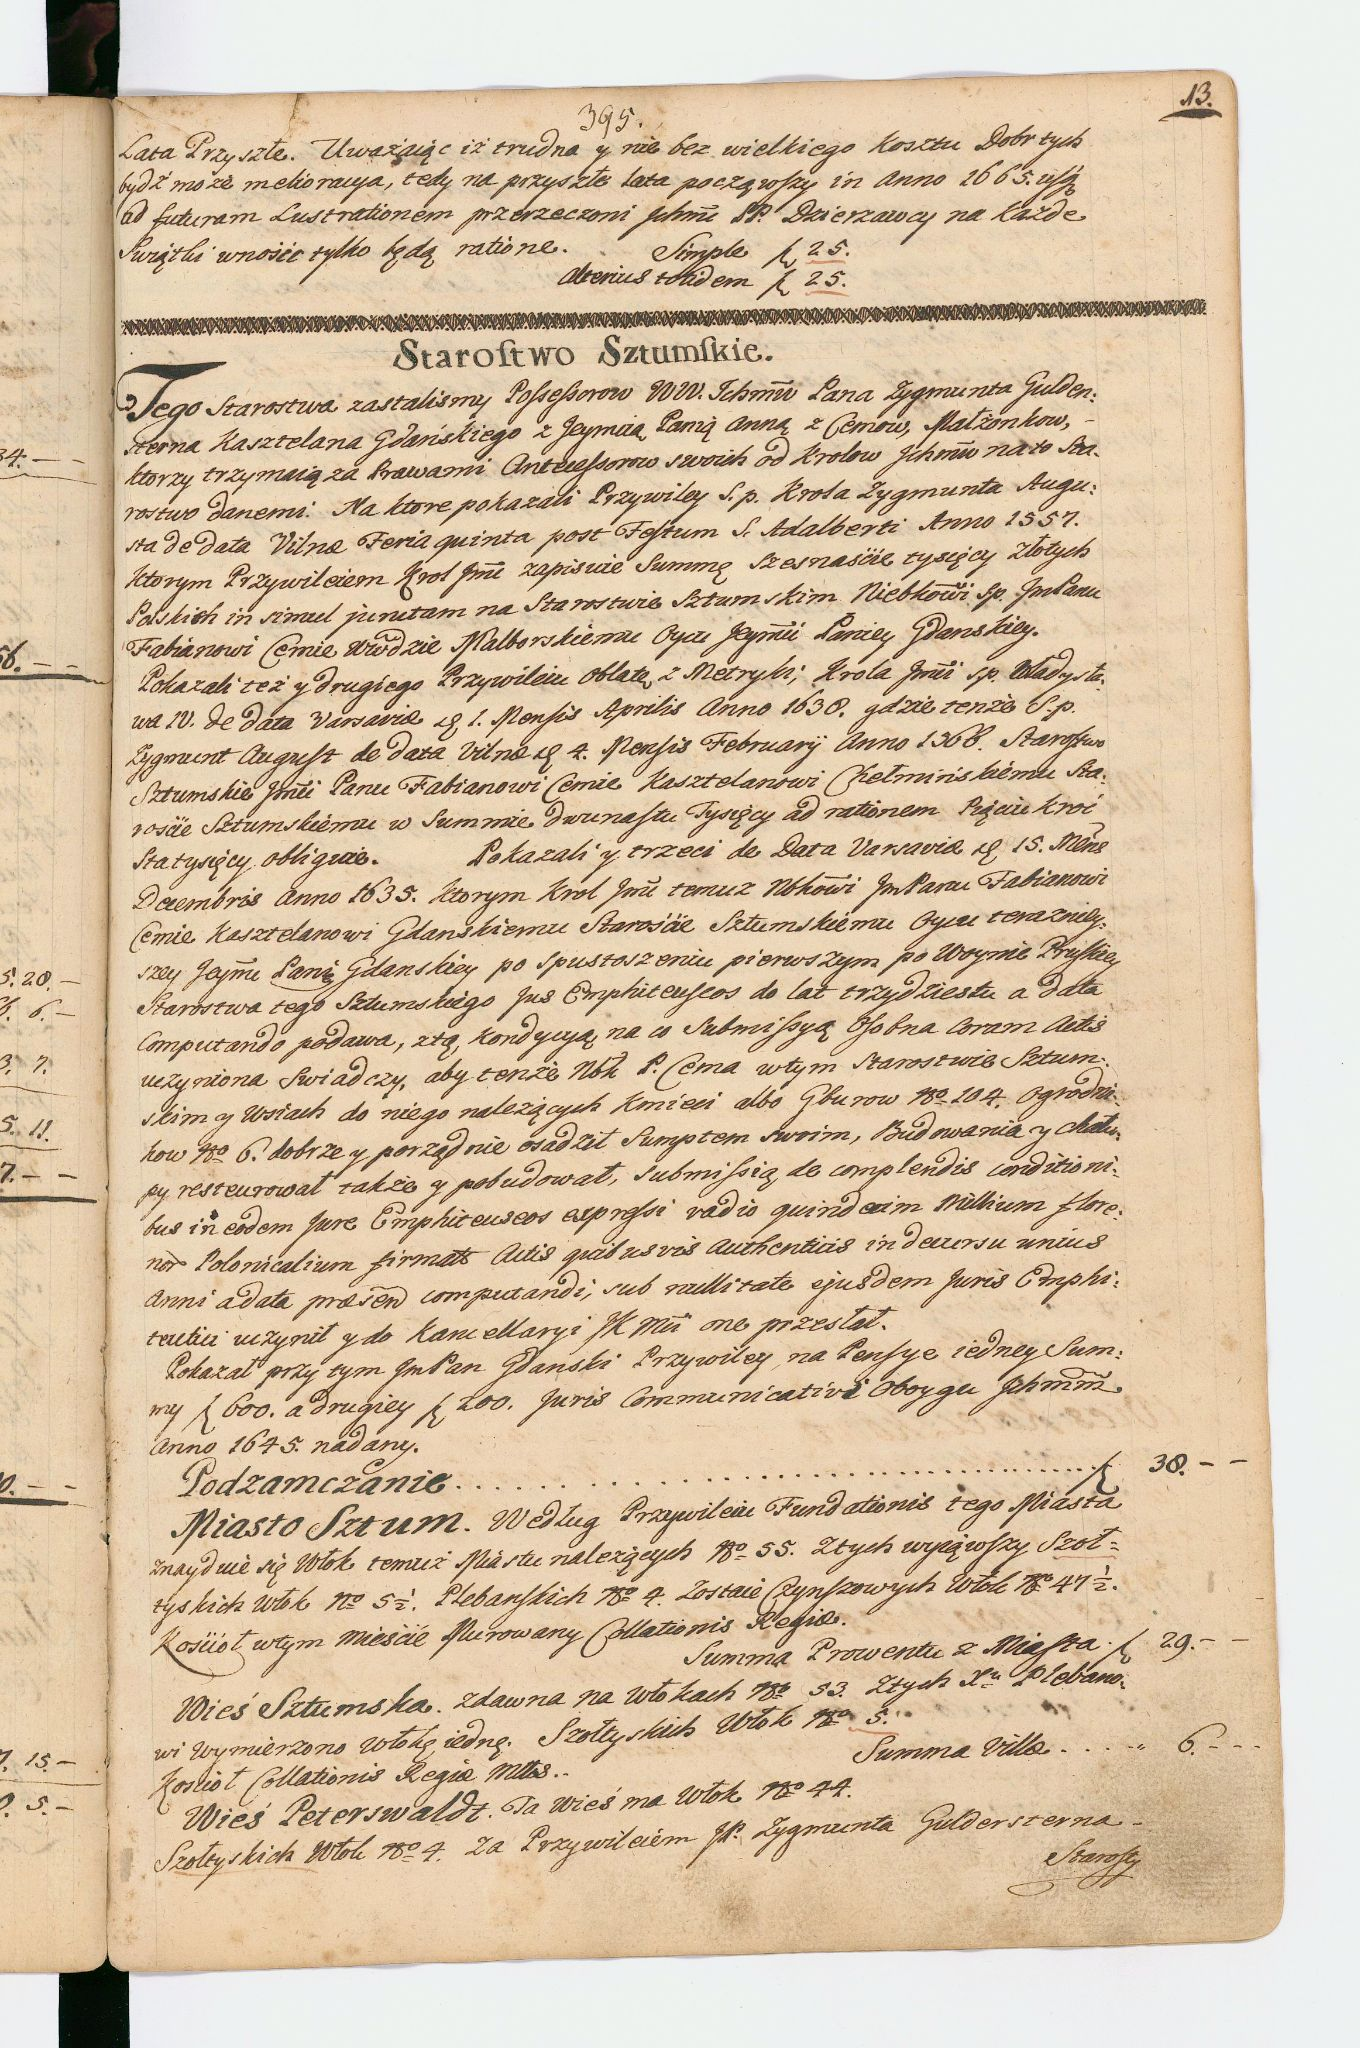 13.
395.
Lata Przyszłe. Uważaiąc iż trudna y nie bez wielkiego Kosztu Dobr tych
bydź może melioracya, tedy na przyszłe lata począwszy in Anno 1665. usq
ad futuram Lustrationem przerzeczoni Jchmć PP. Dzierzawcy na Każde
Swiątki wnosić tylko będą ratione. Simple f 25.
Alterius totidem f 25.
Starostwo Sztumskie.
Tego Starostwa zastalismy Possessorow WW. Jchmć Pana Zygmunta Gulden:
sterna Kasztelana Gdańskiego z Jeymcią Panią Anną z Cemow, Małżonkow,
ktorzy trzymaią za Prawami Antecessorow swoich od Krolow Jchmć na to Sta:
rostwo danemi. Na ktore pokazali Przywiley S. p. Krola Zygmunta Augu:
sta de data Vilnæ Feria quinta post Festum S. Adalberti Anno 1557.
Ktorym Przywileiem Krol Jmć zapisuie Summę szesnaście tysięcy Złotych
Polskich in simul junctam na Starostwie Sztumskim Niebkowi Sp. JmPanu
Fabianowi Cemie Wwodzie Malborskiemu Oycu Jeymci Paniey Gdanskiey.
Pokazali też y drugiego Przywileiu Oblatę z Metryki, Krola Jmci sp. Wladysła:
wa IV. de data Varsaviæ 1. Mensis Aprilis Anno 1638. gdzie tenże S.p.
Zygmunt August de data Vilnæ 4. Mensis February Anno 1568. Starostwo
Sztumskie Jmci Panu Fabianowi Cemie Kasztelanowi Chełmińskiemu Sta:
roście Sztumskiemu w Summie dwunastu Tysięcy ad rationem Pięciukroć
Statysięcy obliguie. Pokazali y trzeci de Data Varsaviæ 15. Mens
Decembris Anno 1635. Ktorym Krol Jmć temuż Nbkowi JmPanu Fabianowi
Cemie Kasztelanowi Gdanskiemu Starościie Sztumskiemu Oycu teraźniey:
szey Jeymć Pani Gdanskiey po spustoszeniu pierwszym po Woynie Pruskiey
Starostwa tego Sztumskiego Jus Emphiteuseos do lat trzydziestu a data
Computando podawa, ztą Kondycyą, na co Submissyą Osobna Coram Actis
uczyniona Swiadczy, aby tenże Nbk P. Cema w tym Starostwie Sztum:
skim y Wsiach do niego należących Kmieci albo Gburow No 104. Ogrodni:
kow No 6. dobrze y porządnie osadził Sumptem swoim, Budowania y chału:
py resteurował także y pobudował, submissią de complendis conditioni:
bus in eodem Jure Emphiteuseos expressi vadio quindecim Millium flore:
nor Polonicalium firmata Actis quibusvis Authenticis in decursu unius
Anni a data præsen computandi, sub nullitate ejusdem Juris Emphi:
teutici uczynił y do Kancellaryi JKMci one przesłał.
Pokazał przy tym JmPan Gdanski Przywiley na Pensye iedney Sum:
my f 600. a drugiey f 200. Juris Communicativi oboygu Jchmm
Anno 1645. nadany.
Podzamczanie. f 38.--
Miasto Sztum. Według Przywileiu Fundationis tego Miasta
znayduie się Włok temuż Miastu należących No 55. Ztych wyiąwszy Szoł=
tyskich Włok No 5½. Plebanskich No 4. Zostaie Czynszowych Włok No 47½.
Kościoł w tym Mieście Murowany Collationis Regiæ.
Summa Prowentu z Miasta. f 29.--
Wieś Sztumska. zdawna na Włokach No 53. Ztych Xu Plebano:
wi Wymierzono Włokę iednę. Szołtyskich Włok No 5.
Kościoł Collationis Regiæ Mttis.. Summa Villæ.... " 6.--
Wieś Peterswaldt. Ta Wieś ma Włok No 44.
Szołtyskich Włok No 4 Za Przywileiem JP. Zygmunta Guldersterna
Starosty
34.--
56.--
5. 20.-
6. 6.-
3. 7.
5. 11.
7.--
0.--
7. 15.-
0. 5.-